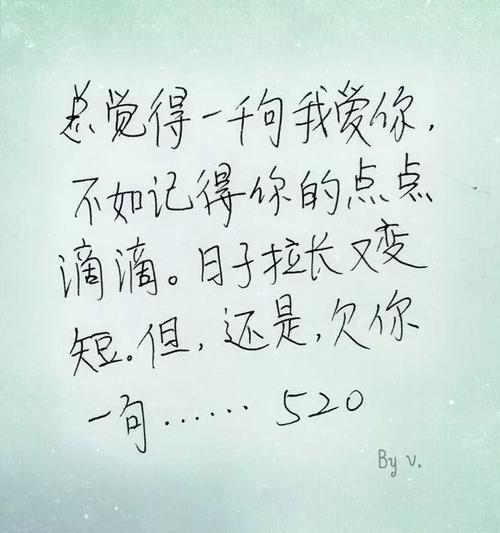 总觉得一千句我爱你,
不如记得你的点点
滴滴。日子拉长又变
短。但,还是,欠你
一句…… 520
By v.